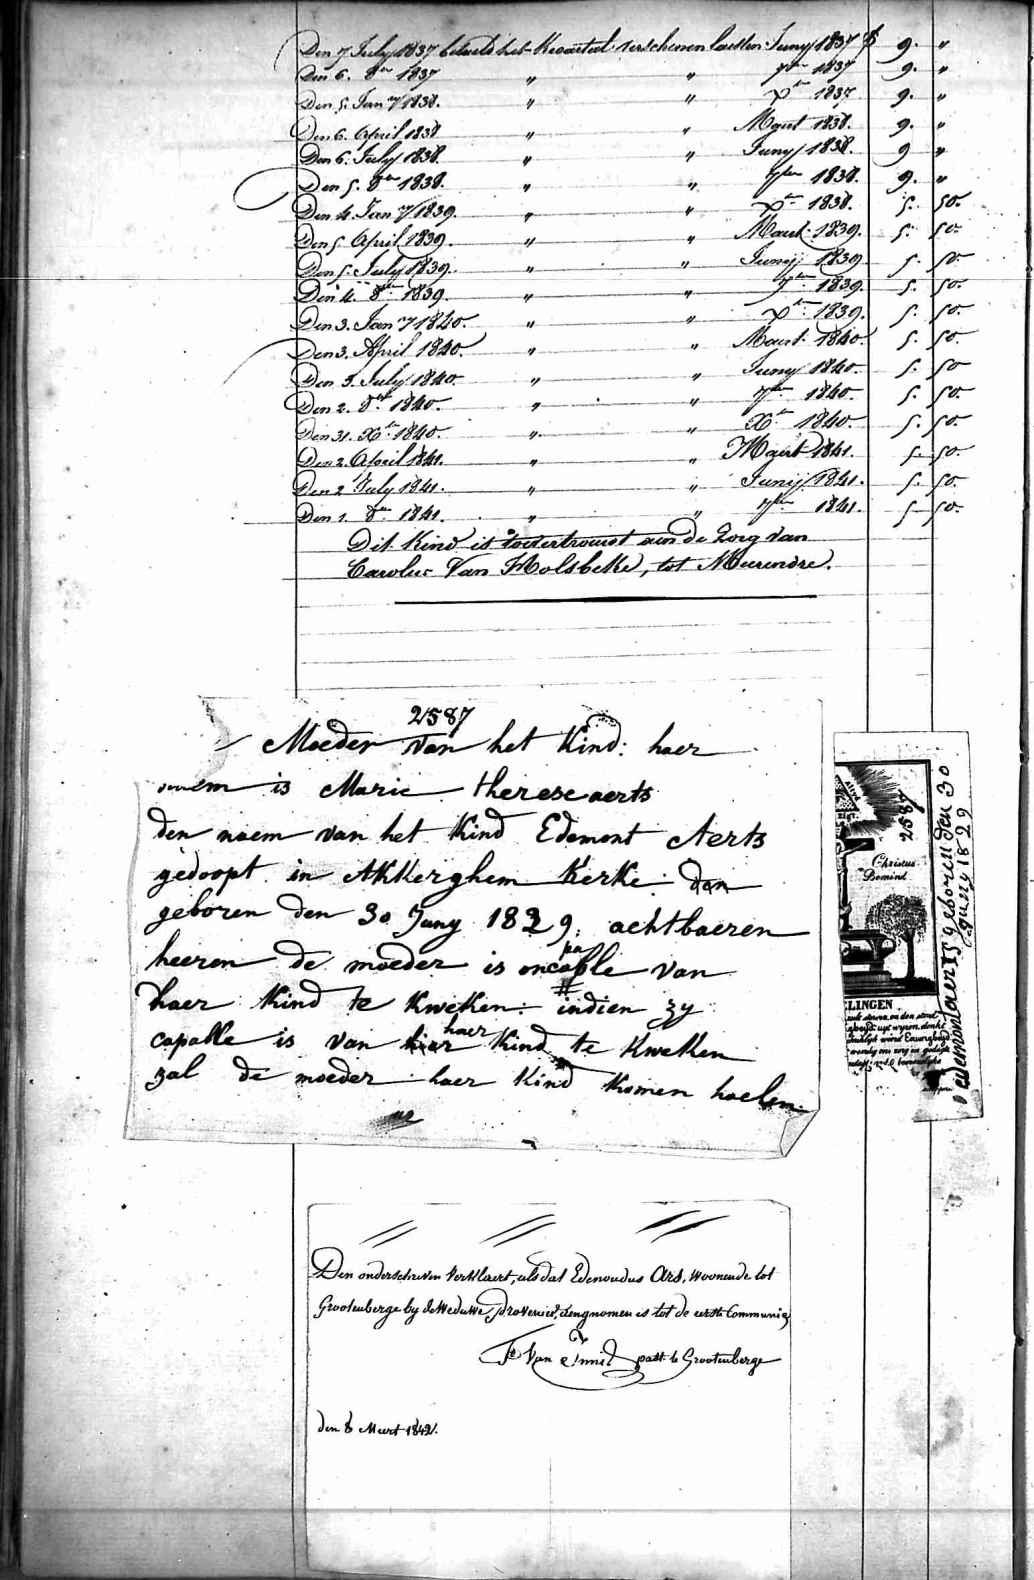 Den 7 July 1837 betaeld het Kwartael verschenen laetsten Juny 1837 9. "
Den 6. 8ber 1837 " " 7ber 1837 9. "
Den 5. Janry 1838. " " Xber 1837 9. "
Den 6. April 1838 " " Maert 1838. 9. "
Den 6. July 1838. " " Juny 1838. 9 "
Den 5. 8ber 1838. " " 7ber 1838. 9. "
Den 4. Janry 1839. " " Xber 1838. 5. 50.
Den 5 April 1839. " " Maert 1839. 5. 50.
Den 5. July 1839. " " Junij 1839 5. 50.
Den 4. 8ber 1839. " " 7ber 1839 5. 50.
Den 3. Janry 1840. " " Xber 1839. 5. 50.
Den 3. April 1840. " " Maert 1840. 5. 50.
Den 3. July 1840. " " Juny 1840. 5. 50
Den 2. 8ber 1840. " " 7ber 1840. 5. 50.
Den 31. Xber 1840. " " Xber 1840. 5. 50.
Den 2. April 1841. " " Maert 1841. 5. 50.
Den 2 July 1841. " " Junij 1841. 5. 50.
Den 1. 8ber 1841. " " 7ber 1841. 5 50.
Dit Kind is toevertrouwt aan de Zorg van
Carolus Van Holsbeke, tot Meerendre.
2587
Moeder van het Kind: haer
naem is Marie therese aerts
den naem van het Kind Edemont Aerts
gedoopt in Akkerghem Kerke: den
geboren den 30 Juny 1829: achtbaeren
heeren de moeder is oncapable van
haer Kind te Kweken: indien zy
capable is van haer Kind te Kweken
zal de moeder haer Kind Komen haelen
2587
Christus
Bemind
LINGEN
edemont aerts geboren den 30
juny 1829
Den onderschreven verklaert, als dat Edemondus Ars, woonende tot
Grootenberge by de Weduwe, aengnomen is tot de eerste Communie
Van past. te Grootenberge
den 8 Meert 1842.